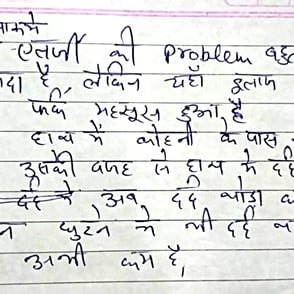 एलर्जी की problem बहु
दा है, लेकिन यहाँ इलाज
फर्क महसूस हुआ है
हाथ में कोहनी के पास
उसकी वजह से हाथ में दर्द
दर्द में अब दर्द थोड़ा क
न घुटने में भी दर्द
अभी कम है,